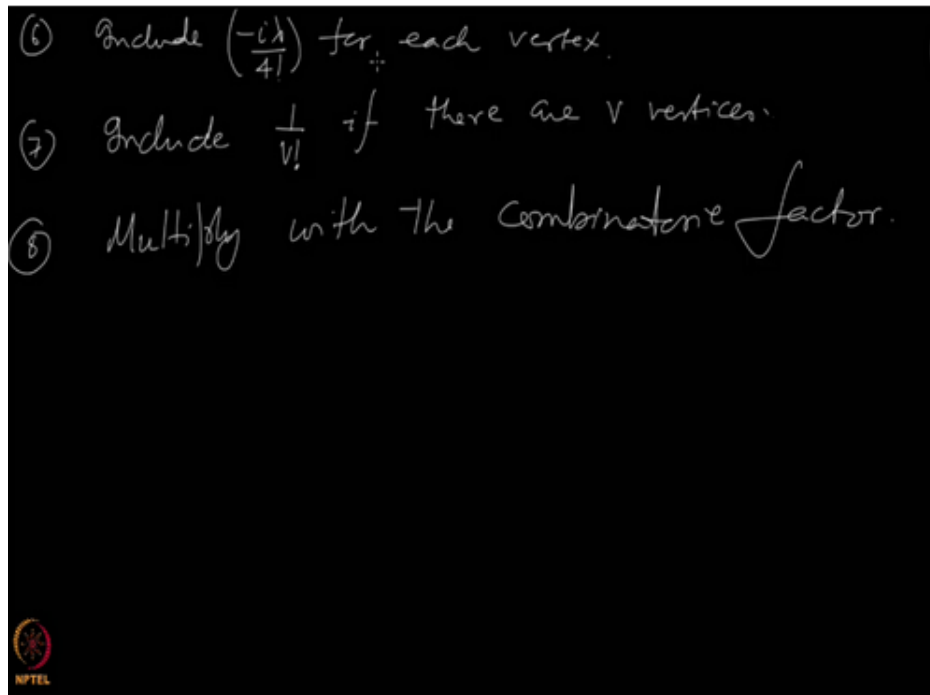 ⑥ Include (-iλ/4!) for each vertex.
⑦ Include 1/V! if there are V vertices.
⑧ Multiply with the combinatoric factor.
NPTEL